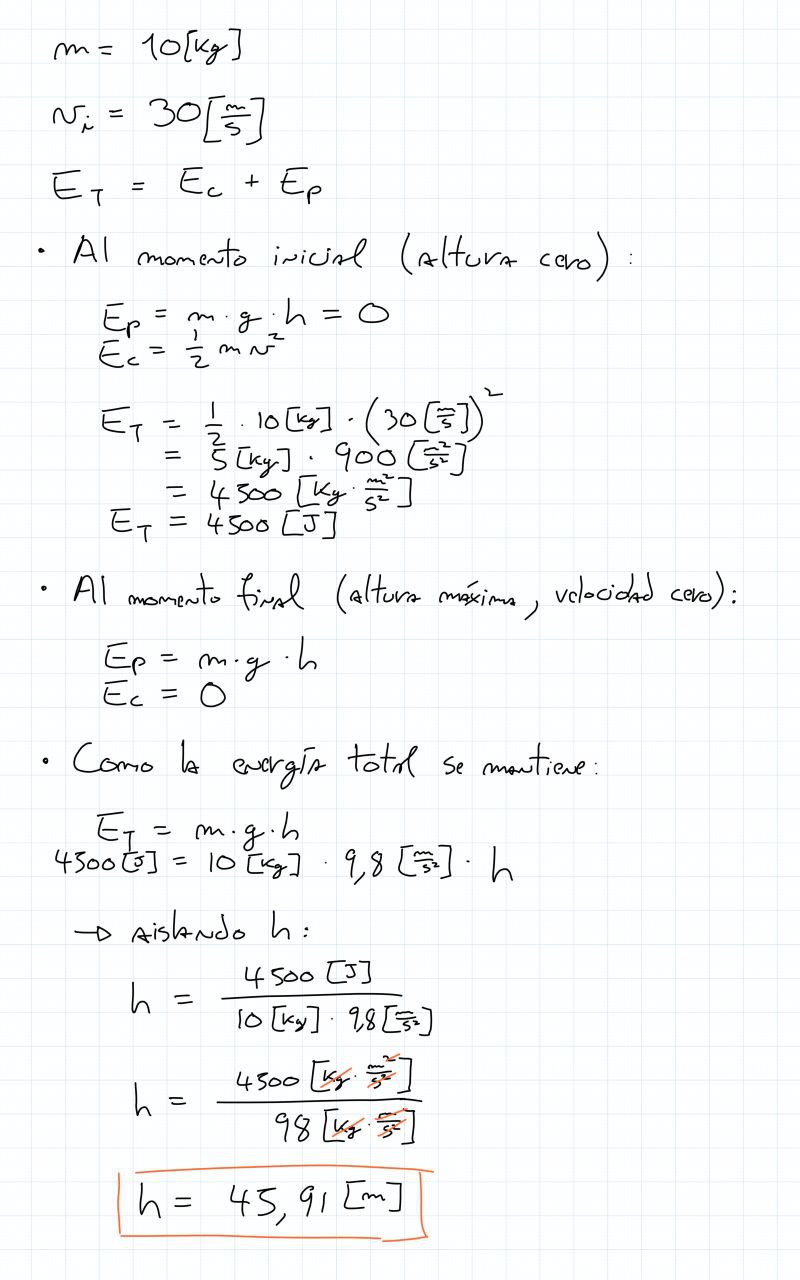 m = 10 [kg]
v_i = 30 [m/s]
E_T = E_c + E_p
• Al momento inicial (altura cero) :
E_p = m · g · h = 0
E_c = 1/2 m v²
E_T = 1/2 · 10 [kg] · (30 [m/s])²
= 5 [kg] · 900 [m²/s²]
= 4500 [kg · m²/s²]
E_T = 4500 [J]
• Al momento final (altura máxima, velocidad cero):
E_p = m · g · h
E_c = 0
• Como la energía total se mantiene:
E_T = m · g · h
4500 [J] = 10 [kg] · 9,8 [m/s²] · h
→ Aislando h:
h = 4500 [J] / 10 [kg] · 9,8 [m/s²]
h = 4500 [kg · m²/s²] / 98 [kg · m/s²]
h = 45,91 [m]